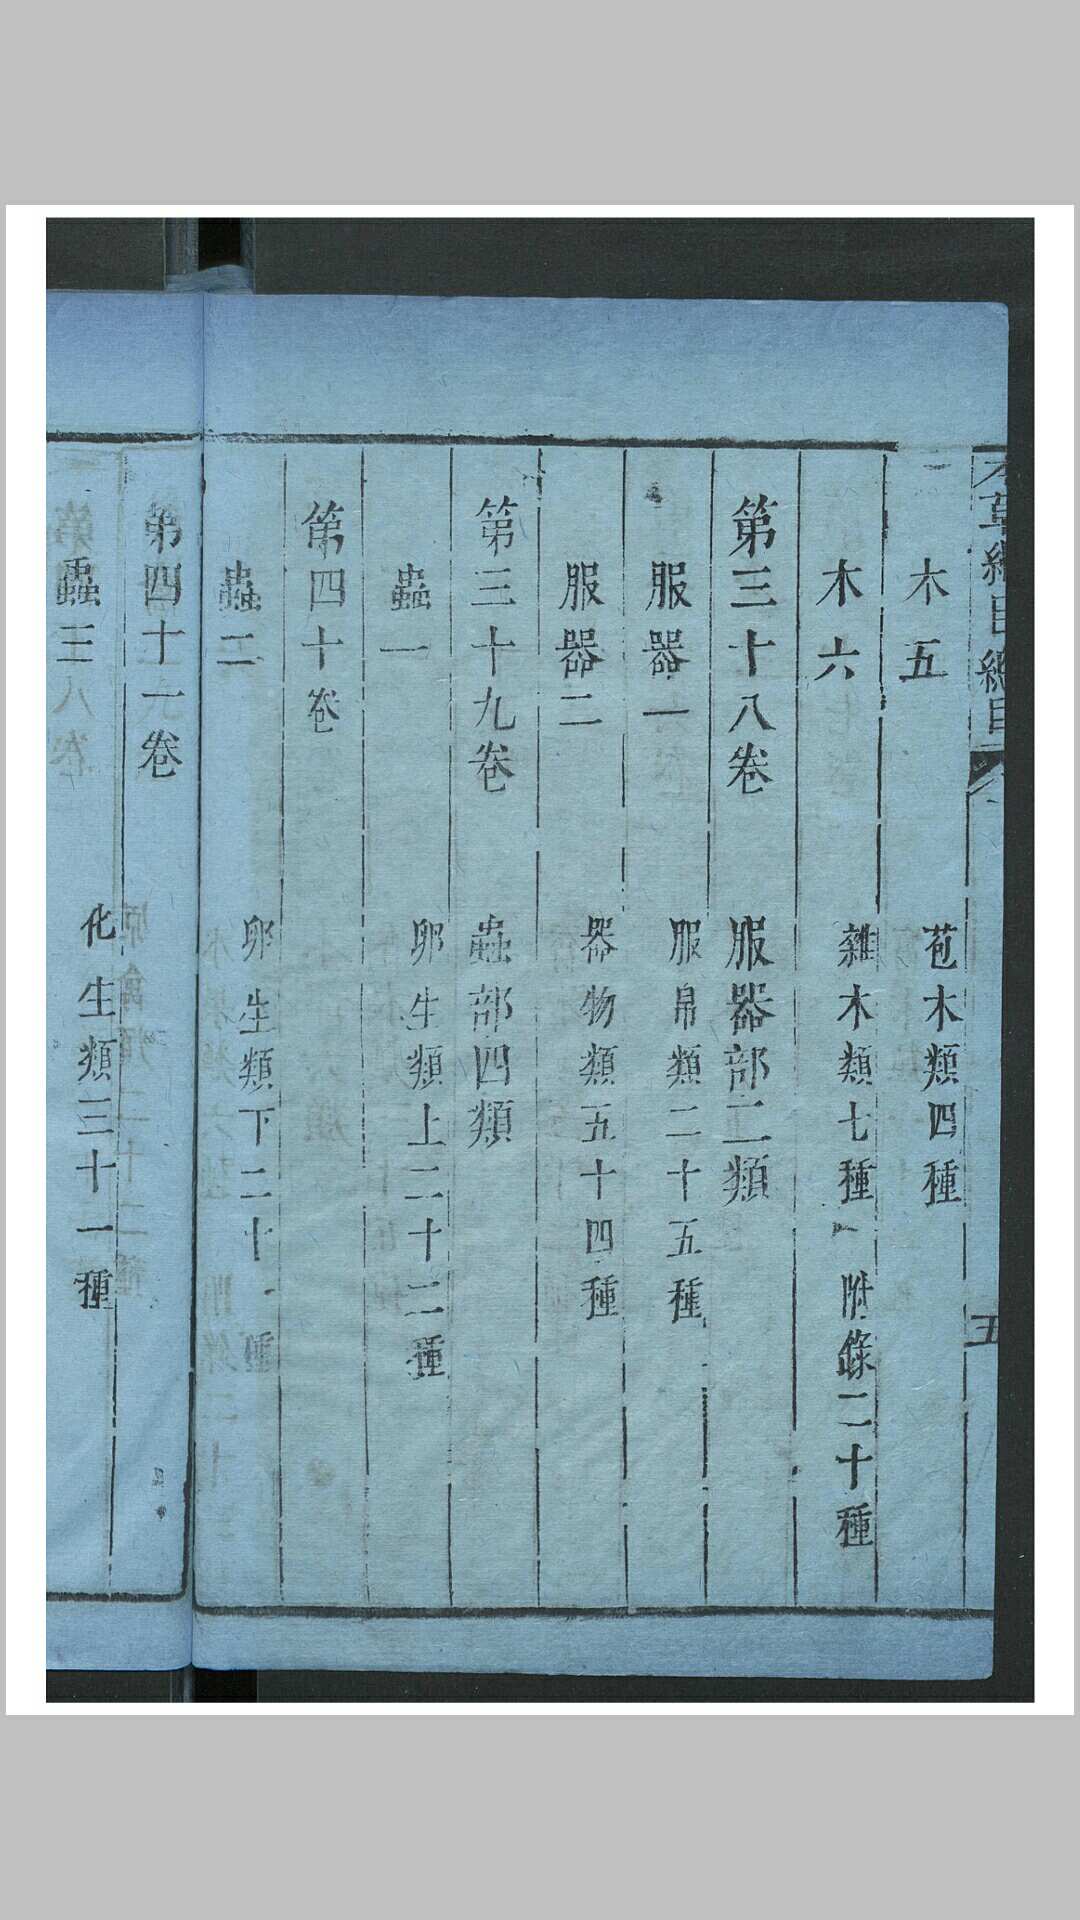 草綱目總目
五
木五 苞木類四種
木六 雜木類七種 附錄二十種
第三十八卷 服器部二類
服器一 服帛類二十五種
服器二 器物類五十四種
第三十九卷 蟲部四類
蟲一 卵生類上二十二種
第四十卷
蟲二 卵生類下二十一種
第四十一卷
蟲三 化生類三十一種